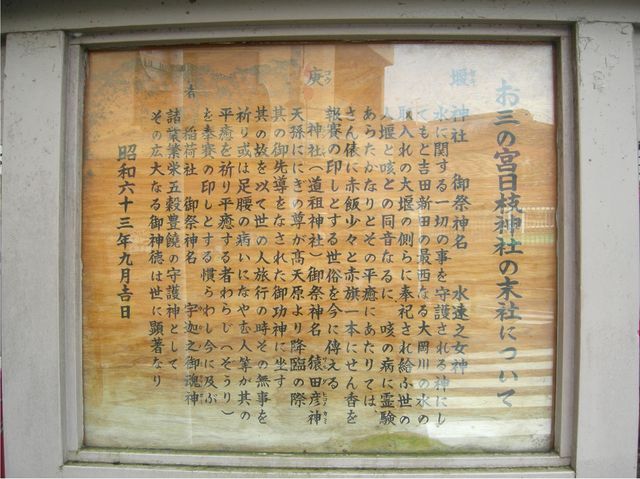 お三の宮日枝神社の末社について
堰神社 御祭神名 水速之女神
水に関する一切の事を守護される神にし
てもと吉田新田の最西なる大岡川の水の
取入れの大堰の側らに奉祀され給ふ世の
人堰と咳との同音なるに、咳の病に霊験
あらたかなりとその平癒にあたりては
さん俵に赤飯少々と赤旗一本にせん香を
報賽の印しとする世俗を今に傳える
庚神社(道祖神社)御祭神名 猿田彦神
天孫ににぎの尊が髙天原より降臨の際
其の御先導をなされた御功神に坐す
其の故を以て世の人旅行の時その無事を
祈り或は足腰の病いになやむ人等が其の
平癒を祈り平癒する者わらじ(そうり)
を奉賽の印しとする慣らわし今に及ぶ
稲荷社 御祭神名 宇迦之御魂神
諸業繁栄五穀豊饒の守護神として
その広大なる御神徳は世に顕著なり
昭和六十三年九月吉日